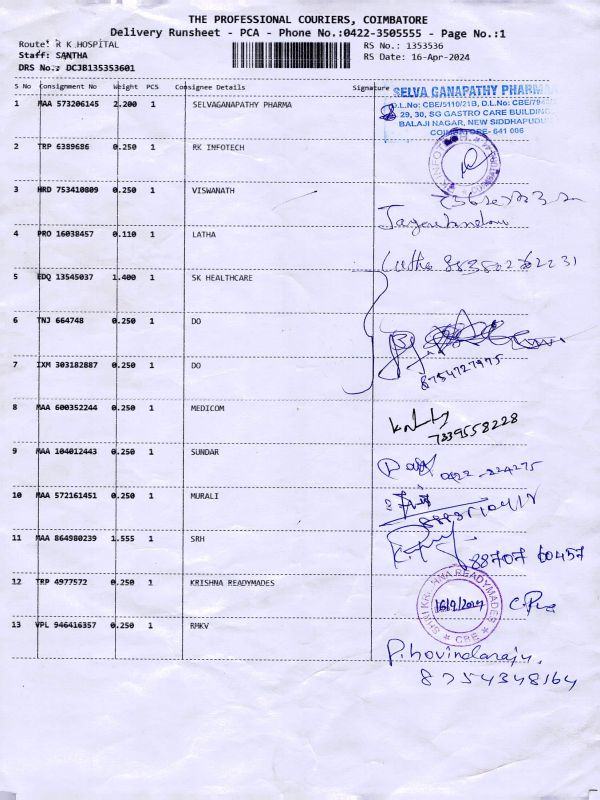 THE PROFESSIONAL COURIERS, COIMBATORE
Delivery Runsheet - PCA - Phone No.:0422-3505555 - Page No.:1
Route: R K HOSPITAL
Staff: SANTHA
DRS No.: DCJB135353601
RS No.: 1353536
RS Date: 16-Apr-2024
S No Consignment No Weight PCS Consignee Details Signature
1 MAA 573206145 2.200 1 SELVAGANAPATHY PHARMA
SELVA GANAPATHY PHARMA
D.L.No: CBE/5110/21B, D.L.No: CBE/
29, 30, SG GASTRO CARE BUILDING
BALAJI NAGAR, NEW SIDDHAPUDUR
COIMBATORE- 641 006
2 TRP 6389686 0.250 1 RK INFOTECH
3 HRD 753410809 0.250 1 VISWANATH
4 PRO 16038457 0.110 1 LATHA
Latha
5 EDQ 13545037 1.400 1 SK HEALTHCARE
6 TNJ 664748 0.250 1 DO
7 IXM 303182887 0.250 1 DO
8754727975
8 MAA 600352244 0.250 1 MEDICOM
7339558228
9 MAA 104012443 0.250 1 SUNDAR
10 MAA 572161451 0.250 1 MURALI
11 MAA 864980239 1.555 1 SRH
88707 60457
12 TRP 4977572 0.250 1 KRISHNA READYMADES
SHRI KRISHNA READYMADES
CBE
13 VPL 946416357 0.250 1 RMKV
P. Govindaraju.
8754348164